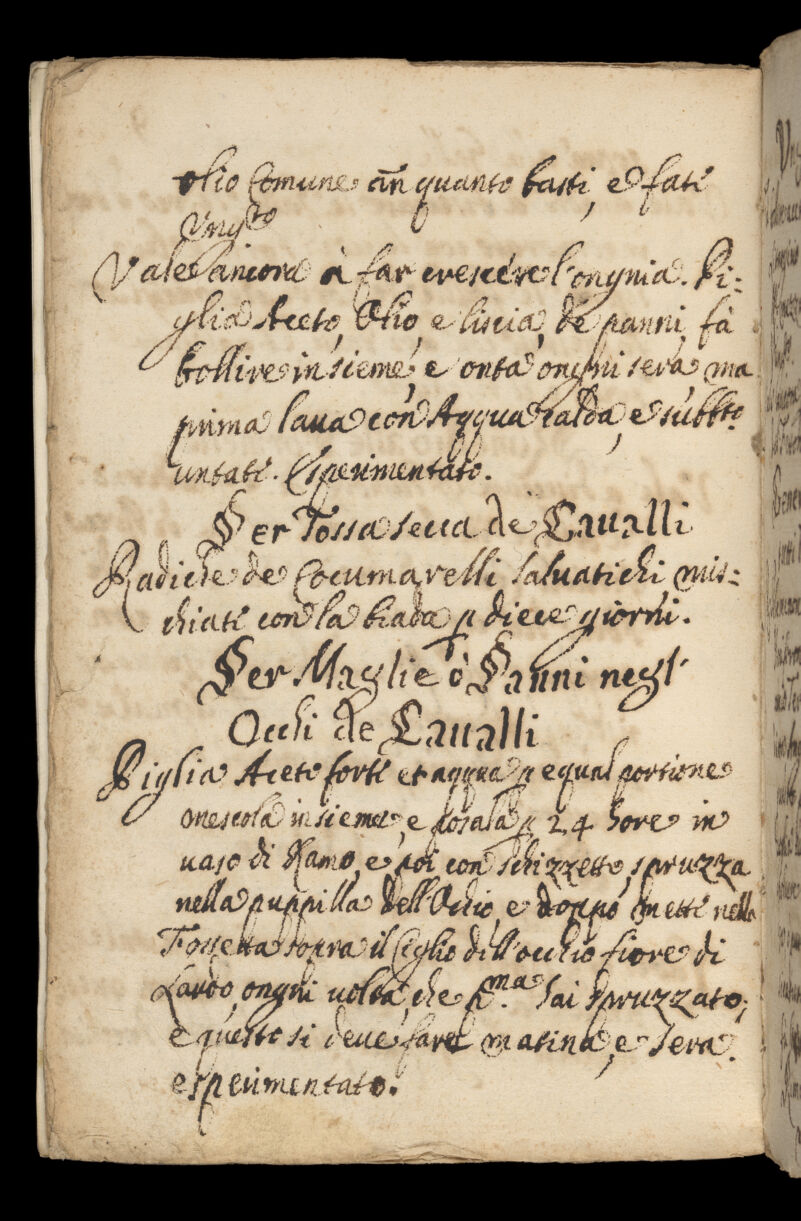 olio Comune añ quanto basti, e fati
Vng.to
Vale ancora à far crescere l'ongnia. Pi=
glia Aceto, Olio, e liscia, de panni, fà
bollire insieme, e onta ongni sera, ma
prima laua con Acqua calda, e subbto.
untati. Esperimentato.
Per Tossa secca de Caualli
Radiche de Cocumarelli saluatichi mis=
chiati con la biada p diece giorni.
Per Maglie ò Panni negl'
Occhi de Caualli
Piglia Aceto forti et acqua p equal portione
mescola insieme, e posala p 24 hore in
uaso di Ramo, e poi con schizzetto, spruzza
nella puppilla dell'Ochio, e doppo metti nella
Fossetta sopra il Ciglio dell'occhio fiore di
Lardo, ongni uolta, che p.ma hai spruzzato;
e questo si deue fare matina, e sera.
esperimentato.